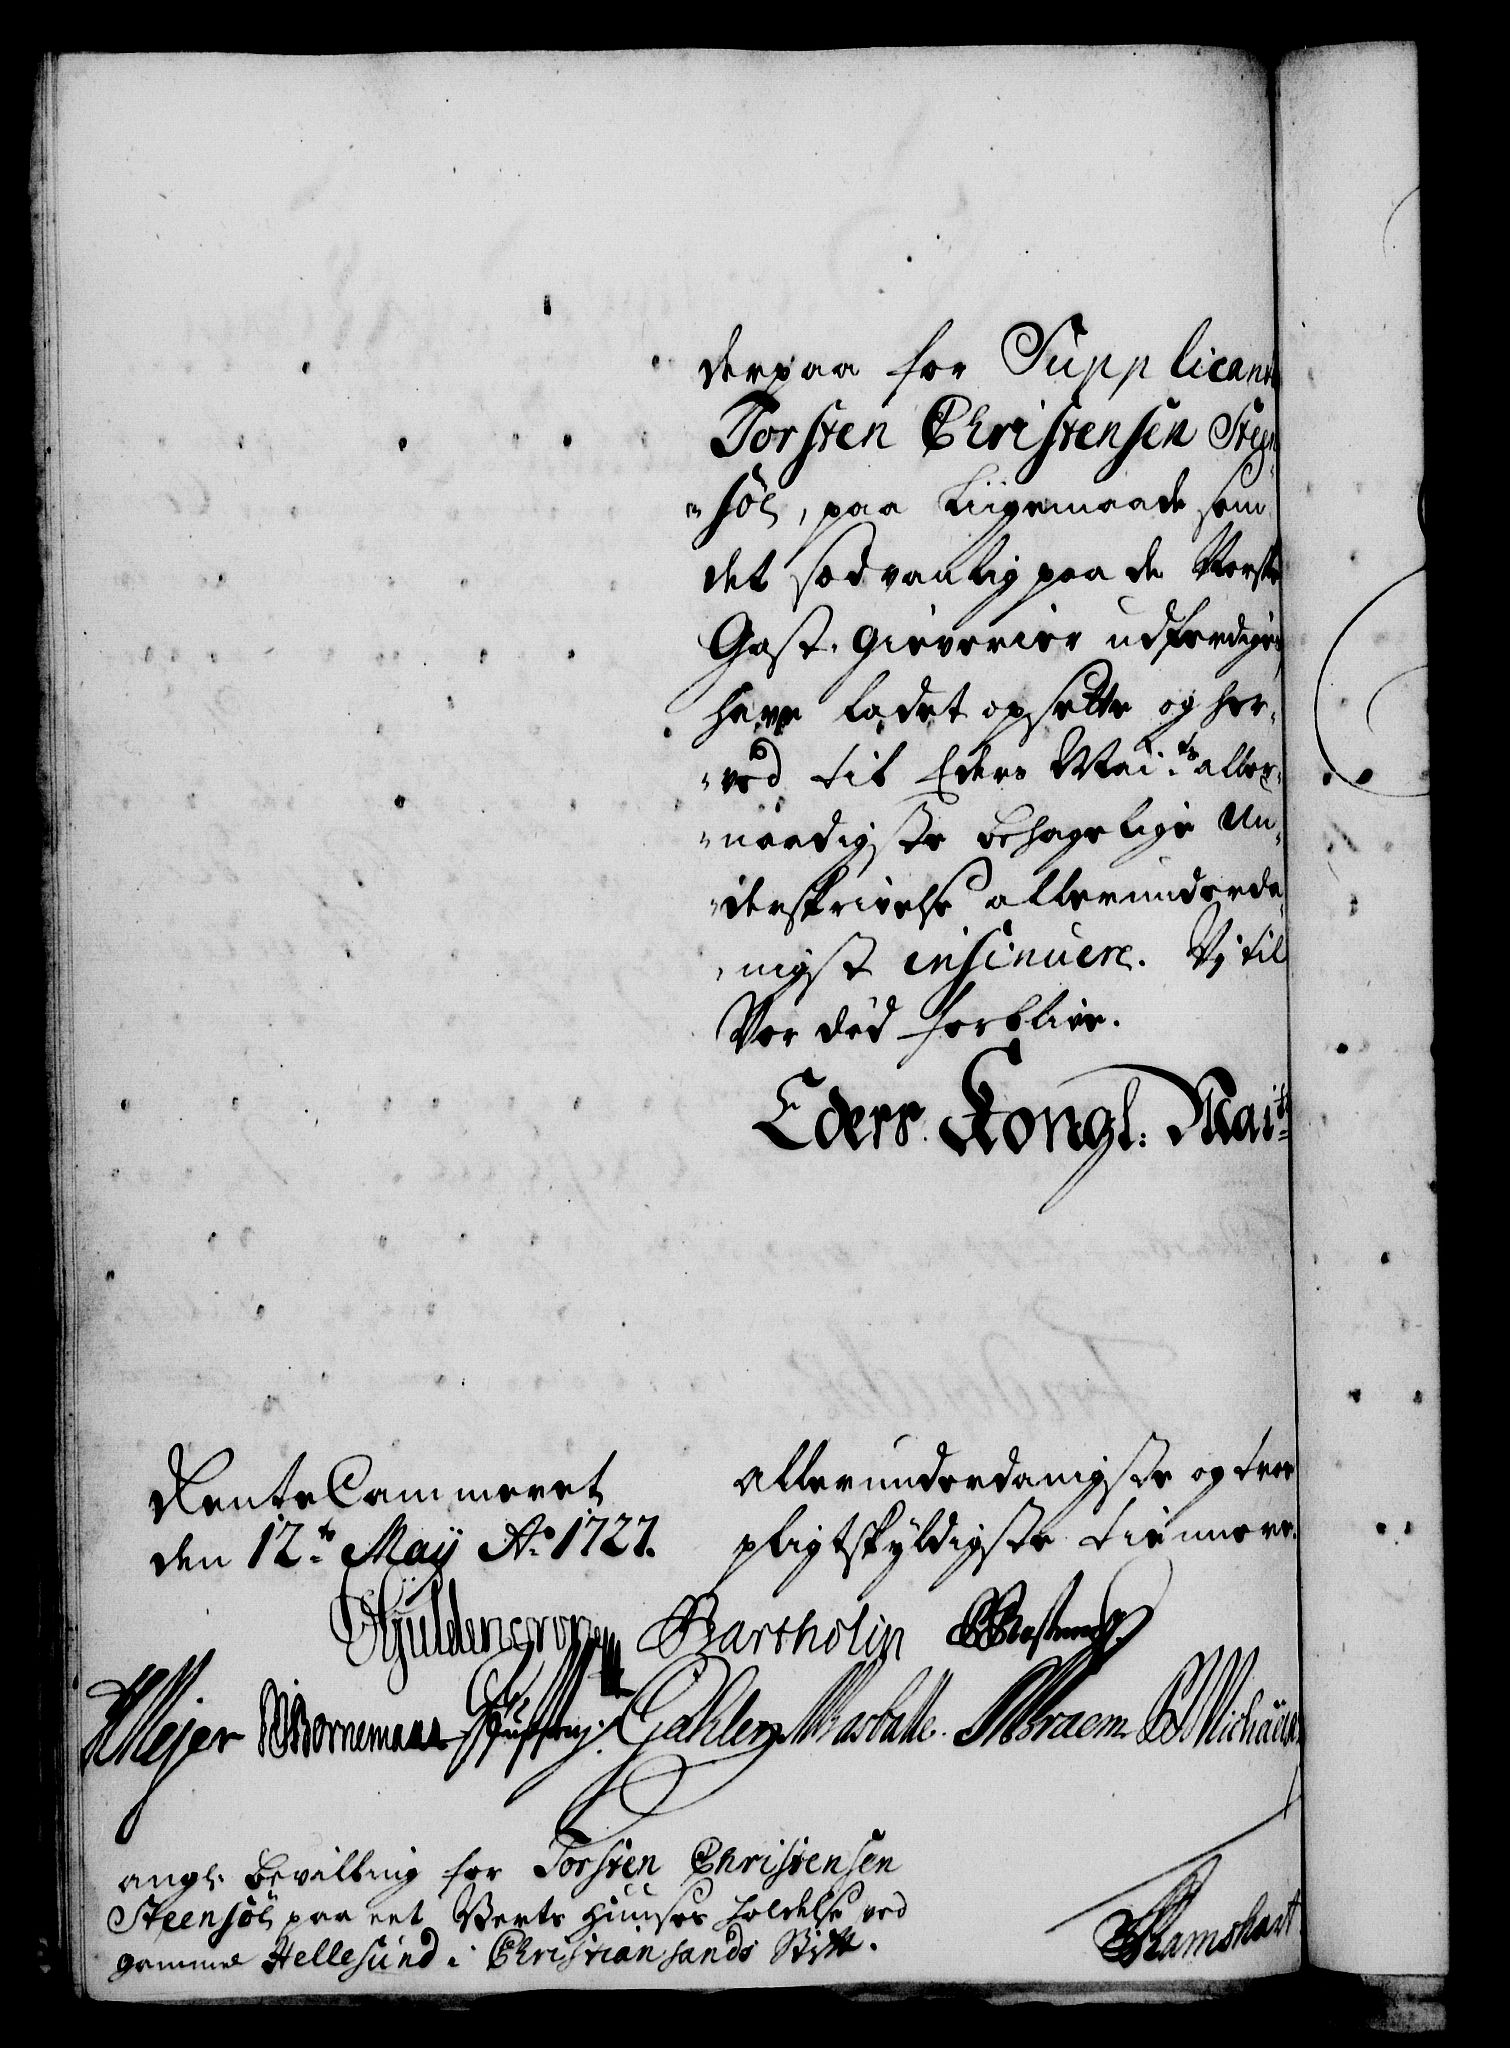 derpaa for Supplicant
Torsten Christensen Steen
søl, paa Liigemaade som
det sædvanlig paa de Norske
Gast-Gieverier udferdiges
have ladet opsette og her-
ved til Eders Mai.ts aller-
naadigste behagelige Un-
derskrivelse allerunderda-
nigst insinuere. Vi til
Vor død forblive.
Eders Kongl: Mai.ts
RenteCammeret
den 12.te Maÿ A.o 1727.
allerunderdanigste og troe
pligtskyldigste tiennere.
Güldencrone Bartholin
Mejer Bornemann Gähler Braem Michaelsen
angl: bevilling for Torsten Christensen
Steensøl paa eet Verts Huuses holdelse ved
gammel Hellesund i Christiansands Stift.
Ramshart